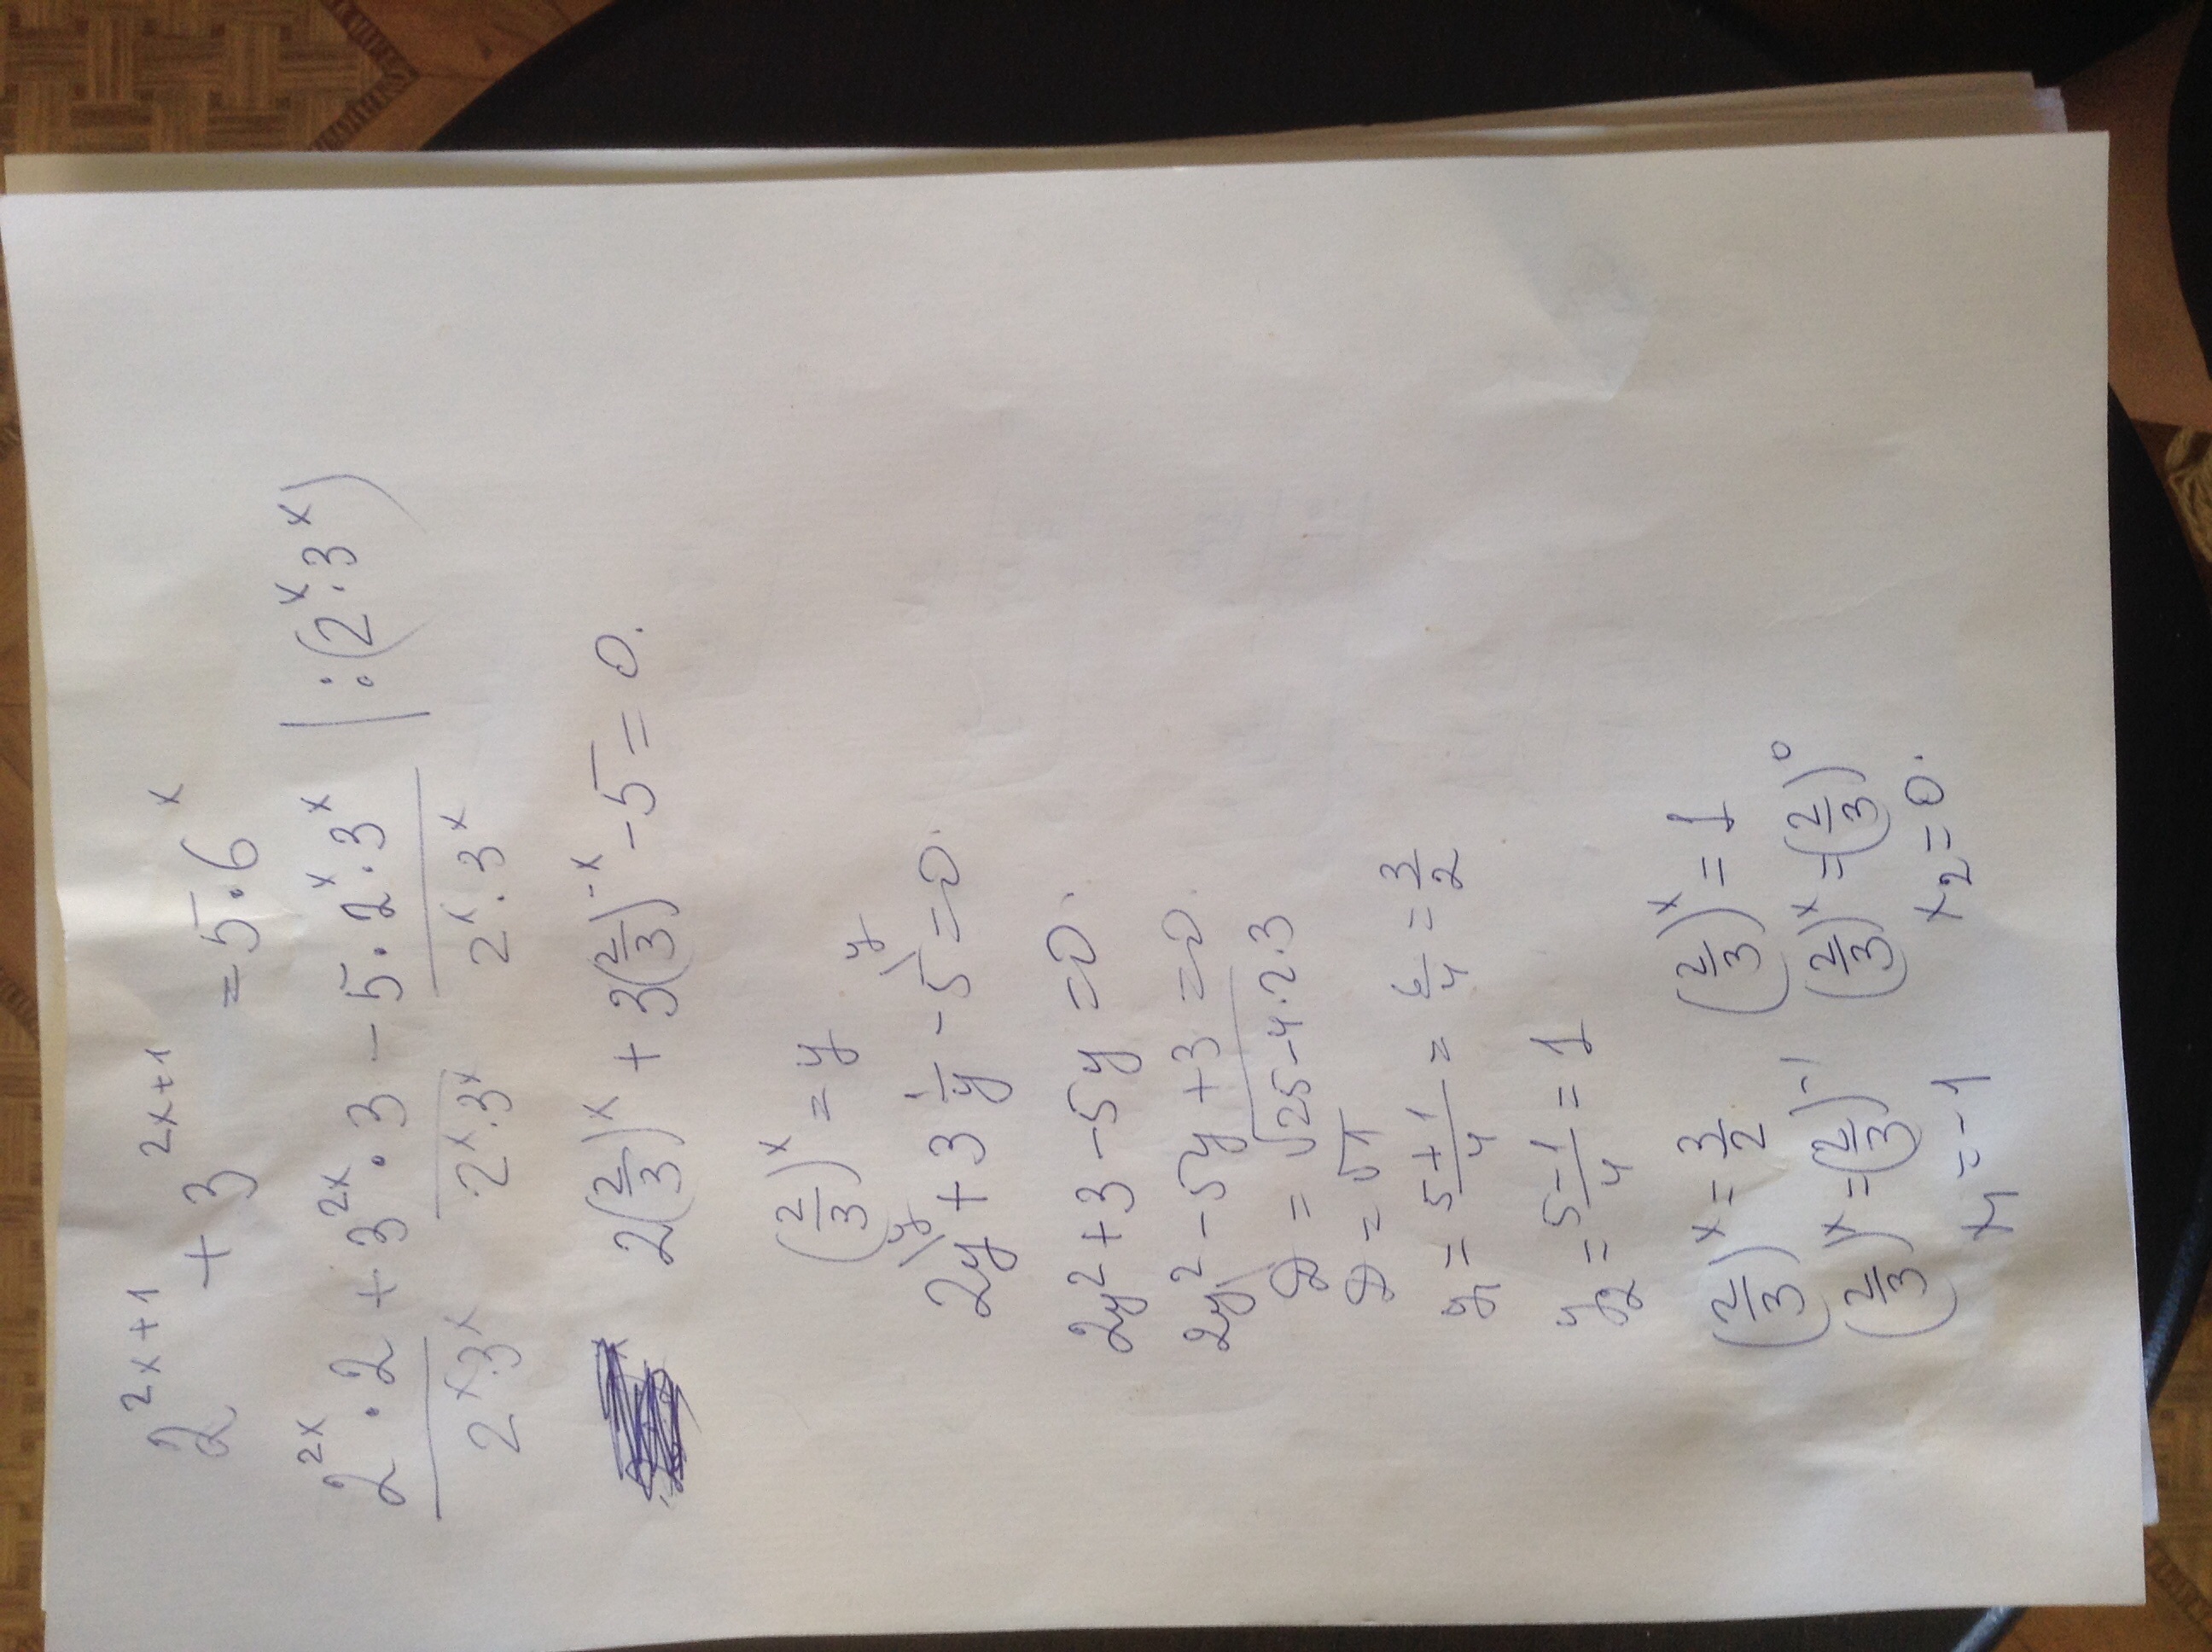 2^{2x+1} + 3^{2x+1} = 5·6^x
\frac{2^{2x}·2}{2^x·3^x} + \frac{3^{2x}·3}{2^x·3^x} - \frac{5·2^x·3^x}{2^x·3^x} |:(2^x·3^x)
2(\frac{2}{3})^x + 3(\frac{2}{3})^{-x} - 5 = 0.
(\frac{2}{3})^x = y
2y^{\y} + 3\frac{1}{y} - 5^{\y} = 0.
2y² + 3 - 5y = 0.
2y² - 5y + 3 = 0.
D = \sqrt{25-4·2·3}
D = √1
y₁ = \frac{5+1}{4} = \frac{6}{4} = \frac{3}{2}
y₂ = \frac{5-1}{4} = 1
(\frac{2}{3})^x = \frac{3}{2} (\frac{2}{3})^x = 1
(\frac{2}{3})^x = (\frac{2}{3})^{-1} (\frac{2}{3})^x = (\frac{2}{3})^0
x₁ = -1 x₂ = 0.